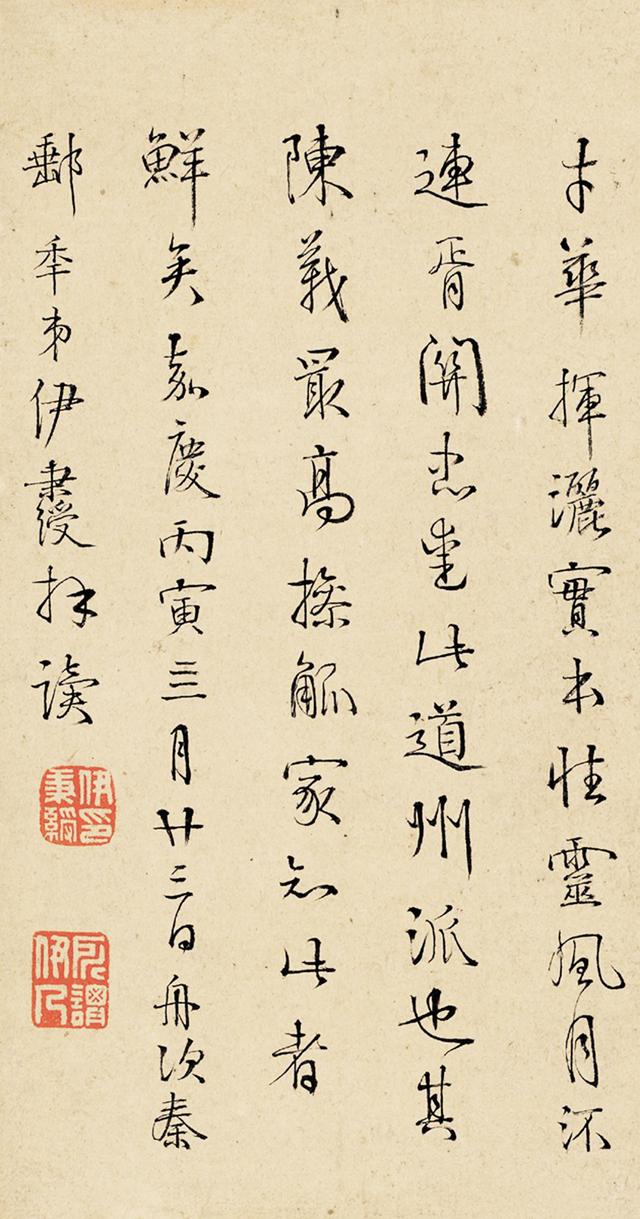 才華揮灑實本性靈風月流
連胥關忠愛此道州派也其
陳義最高操觚家知此者
鮮矣嘉慶丙寅三月廿三日舟次秦
郵年弟伊秉綬拜讀
伊印秉綬
所謂伊人